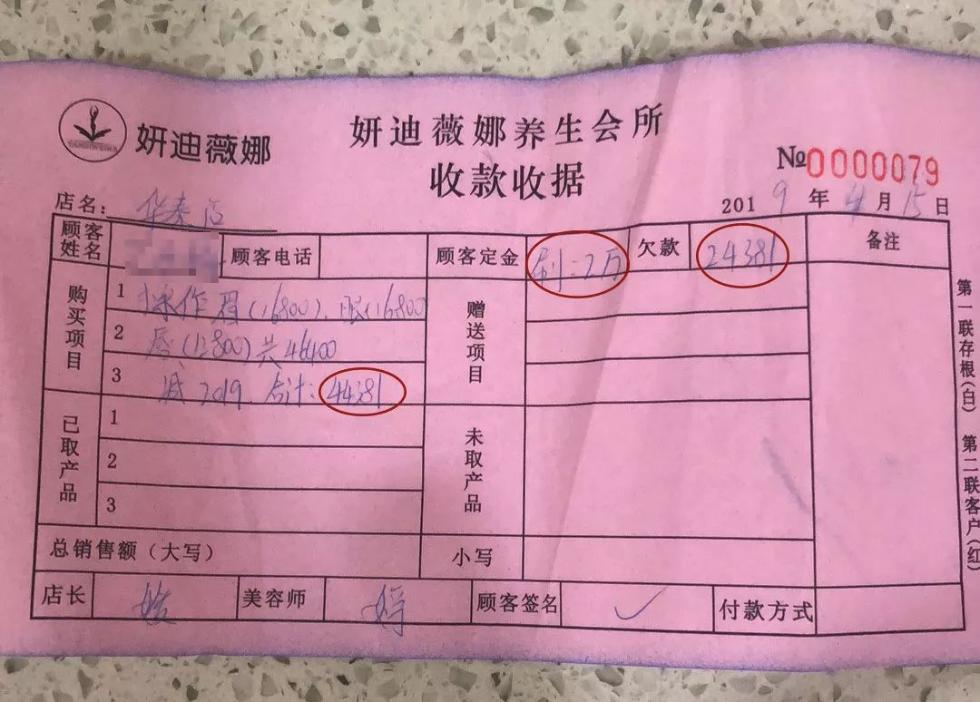 妍迪薇娜
妍迪薇娜养生会所
收款收据
№0000079
店名: 华泰店
2019年4月15日
顾客姓名 顾客电话 顾客定金 刷:2万 欠款 24381 备注
购买项目
1 冰作眉(16800).眼(16800
2 唇(12800)共46400
3 减2019. 合计:44381
赠送项目
已取产品
1
2
3
未取产品
总销售额(大写) 小写
店长 美容师 婷 顾客签名 ✓ 付款方式
第一联存根(白) 第二联客户(红)